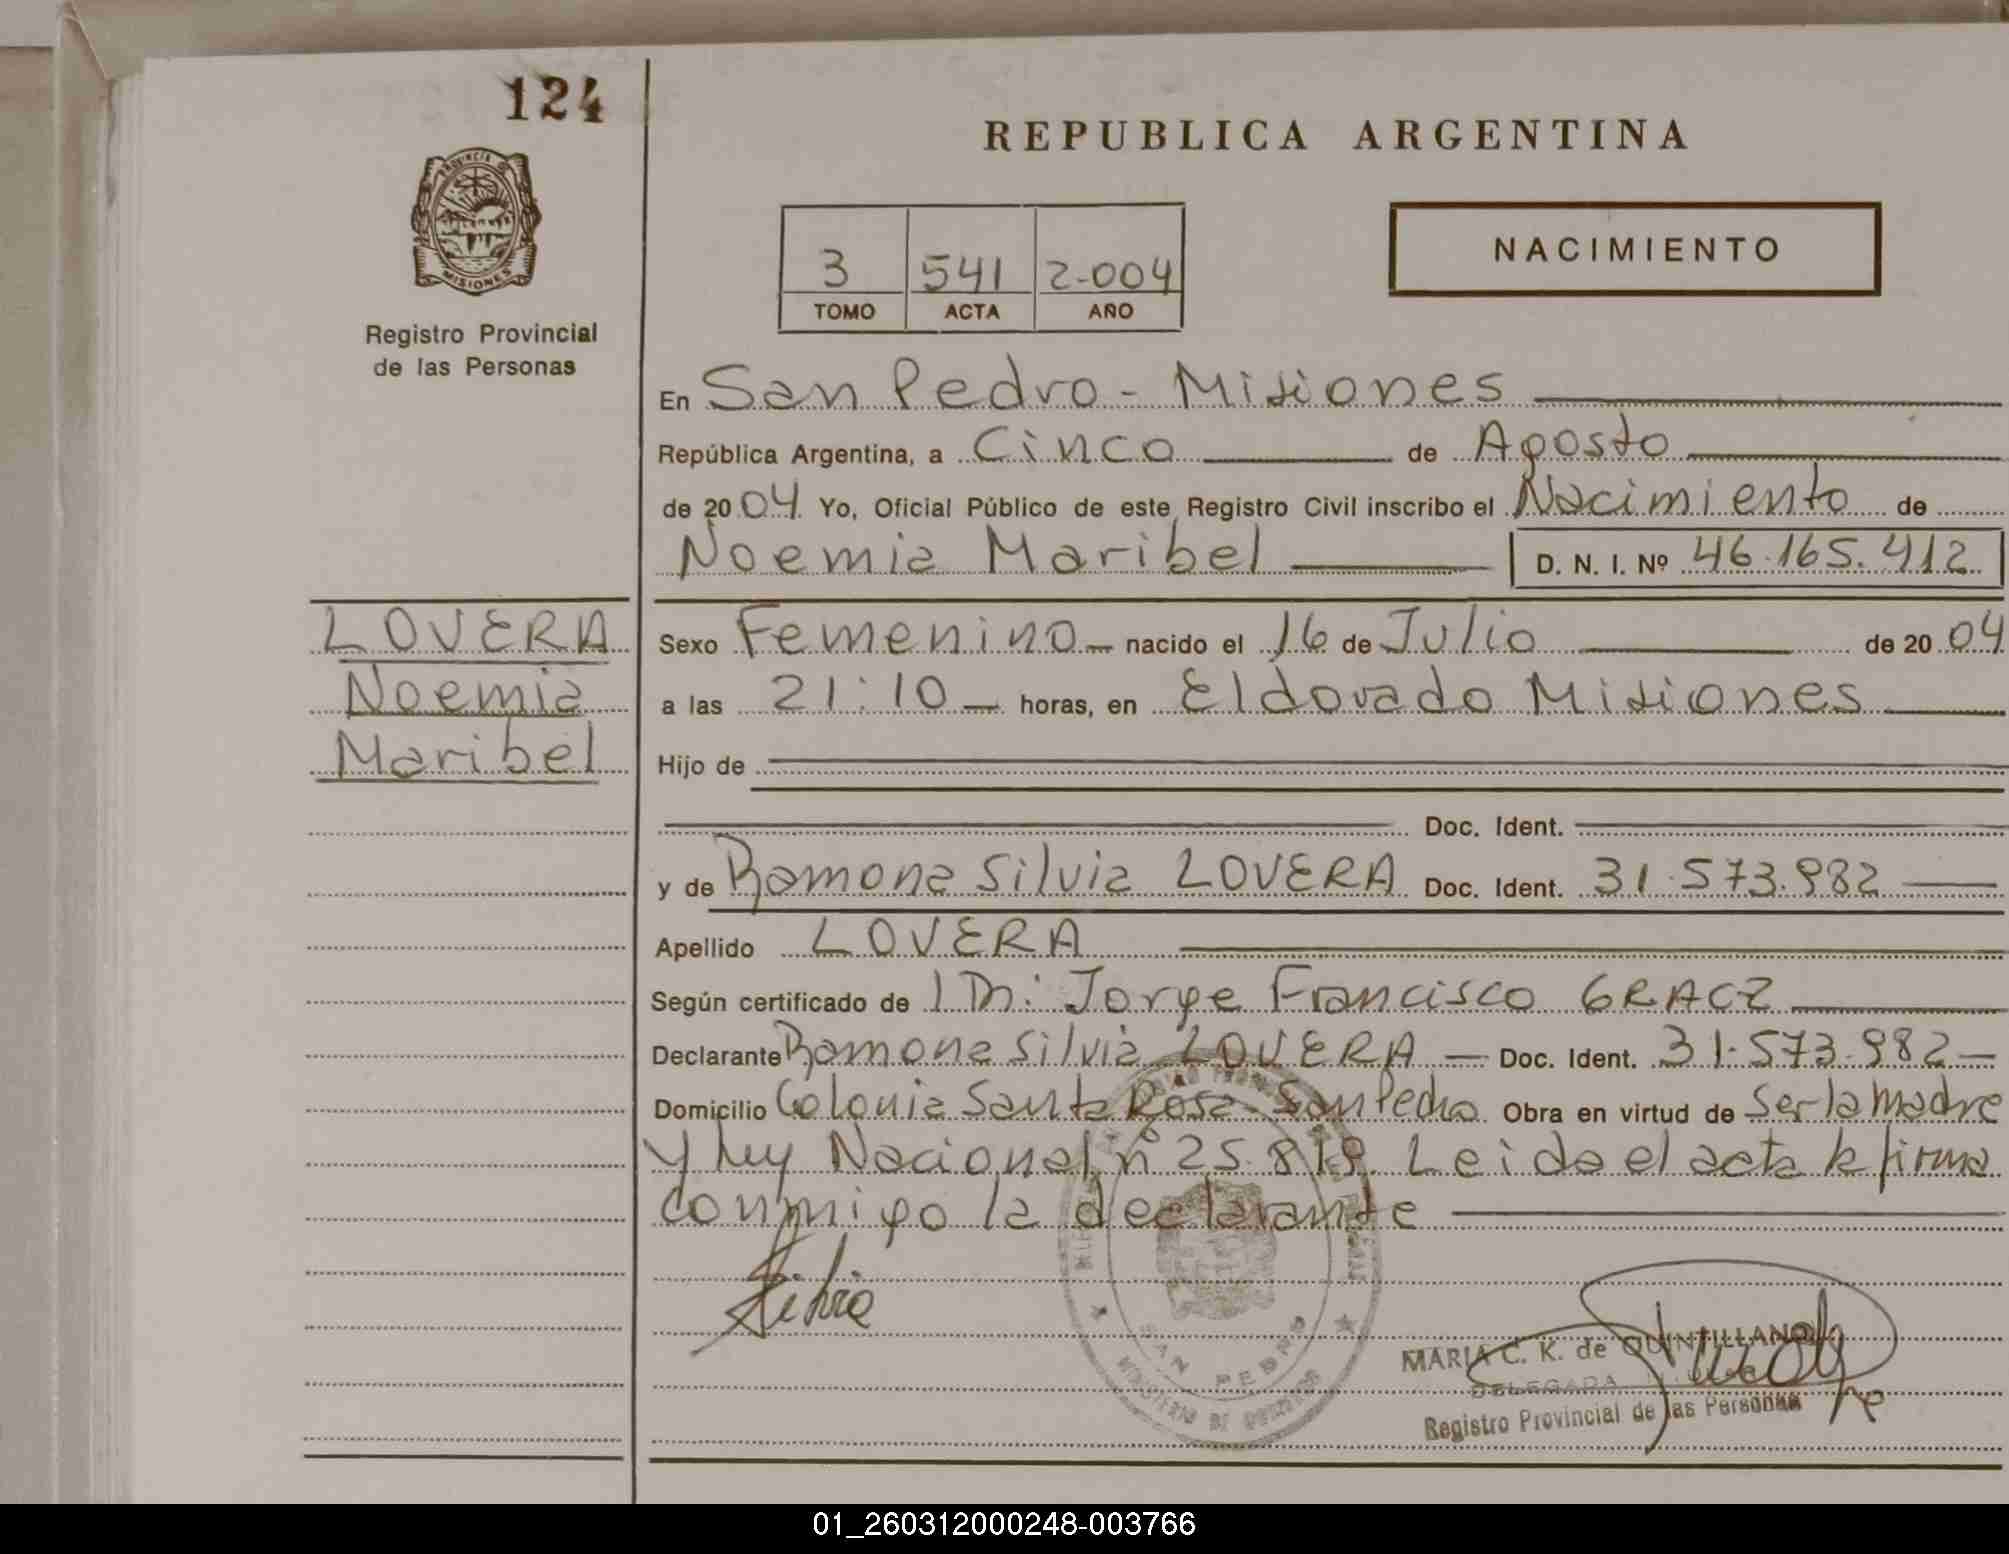 124
REPUBLICA ARGENTINA
PROVINCIA DE
MISIONES
Registro Provincial
de las Personas
NACIMIENTO
3 541 2-004
TOMO ACTA AÑO
En San Pedro - Misiones
República Argentina, a Cinco de Agosto
de 2004 Yo, Oficial Público de este Registro Civil inscribo el Nacimiento de
Noemia Maribel D. N. I. Nº 46.165.412
LOVERA
Noemia
Maribel
Sexo Femenino nacido el 16 de Julio de 2004
a las 21:10 horas, en Eldorado Misiones
Hijo de
Doc. Ident.
y de Ramona Silvia LOVERA Doc. Ident. 31.573.982
Apellido LOVERA
Según certificado de Jorge Francisco GRACZ
Declarante Ramona Silvia LOVERA Doc. Ident. 31.573.982
Domicilio Colonia Santa Rosa - San Pedro Obra en virtud de Ser la madre
y ley Nacional nº 25.819. Leida el acta la firma
conmigo la declarante
Silvia
SAN PEDRO
MARIA C. K. de QUINTILLAN
DELEGADA
Registro Provincial de las Personas
01_260312000248-003766